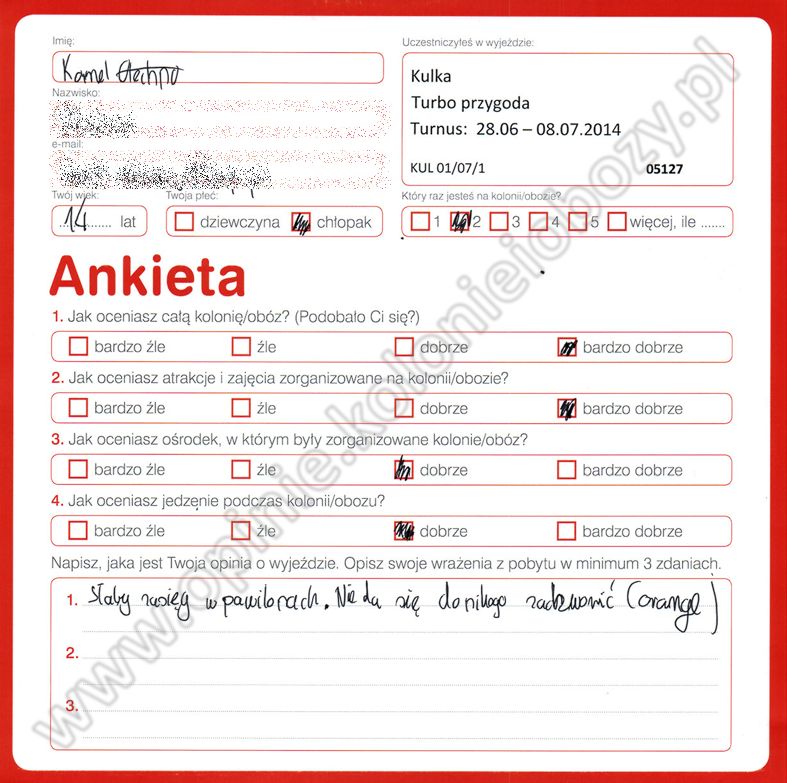 Imię:
Kamel
Nazwisko:
e-mail:
Twój wiek:
14 lat
Twoja płeć:
dziewczyna chłopak
Uczestniczyłeś w wyjeździe:
Kulka
Turbo przygoda
Turnus: 28.06 – 08.07.2014
KUL 01/07/1 05127
Który raz jesteś na kolonii/obozie?
1 2 3 4 5 więcej, ile .......
Ankieta
1. Jak oceniasz całą kolonię/obóz? (Podobało Ci się?)
bardzo źle źle dobrze bardzo dobrze
2. Jak oceniasz atrakcje i zajęcia zorganizowane na kolonii/obozie?
bardzo źle źle dobrze bardzo dobrze
3. Jak oceniasz ośrodek, w którym były zorganizowane kolonie/obóz?
bardzo źle źle dobrze bardzo dobrze
4. Jak oceniasz jedzenie podczas kolonii/obozu?
bardzo źle źle dobrze bardzo dobrze
Napisz, jaka jest Twoja opinia o wyjeździe. Opisz swoje wrażenia z pobytu w minimum 3 zdaniach.
1. Słaby zasięg w pawilonach. Nie da się do nikogo zadzwonić (orange)
2.
3.
www.opinie.kolonieiobozy.pl